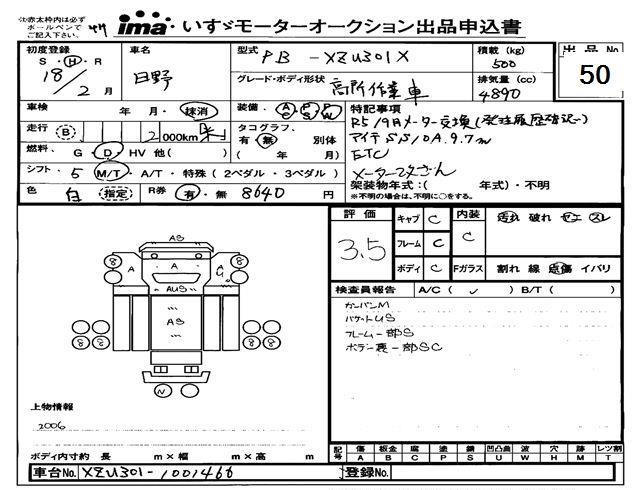 ※赤太枠内は必ず
ボールペンにて
ご記入下さい。
ima いすゞモーターオークション出品申込書
初度登録 車名 型式 PB-XZU301X 積載(kg) 500 出品No
S・H・R 18/2月 日野 グレード・ボディ形状 高所作業車 排気量(cc) 4890 50
車検 年 月・抹消 装備 AC PS PW 特記事項
走行 B 2,000km タコグラフ 有・無 別体 R5/9月メーター交換(発注履歴確認)
アイチSS10A 9.7m
燃料 G・D・HV 他( ) ( 年 月) ETC
シフト 5 M/T・A/T・特殊(2ペダル・3ペダル) メーター改ざん
架装物年式:( 年式)・不明
色 白 指定 R券 有・無 8640円 ※不明の場合は、不明に○をする。
評価 3.5 キャブ C 内装 C 汚れ 破れ ヤニ スレ
フレーム C
ボディ C Fガラス 割れ 線 点傷 イバリ
検査員報告 A/C( ✓ ) B/T( )
カーバンM
バケットUS
フレーム一部S
ボデー裏一部SC
AS
8 A A A G 8
AUS
AS
8 8 8 8
N
上物情報
2006
ボディ内寸約 長 m×幅 m×高 m
記号 傷 板金 腐 塗 錆 凹凸曲 波 穴 跡 レツ割
A B C P S U W H M T
車台No. XZU301-1001466 登録No.